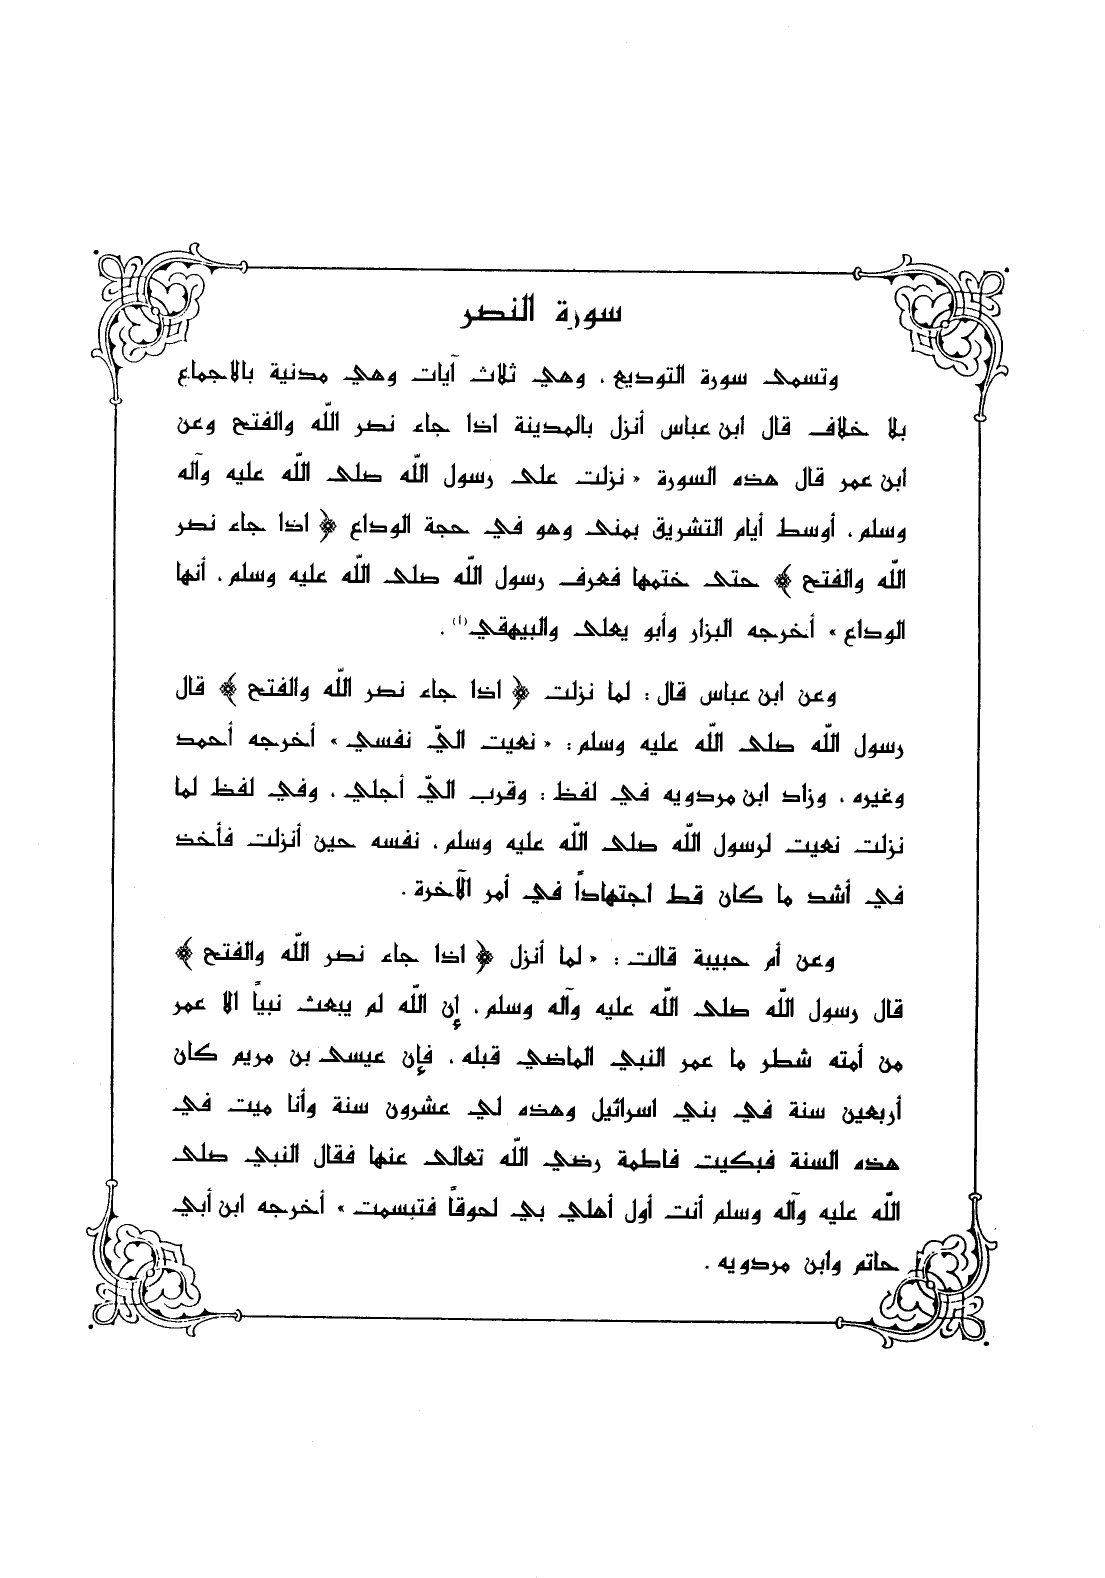 سورة النصر
وتسمى سورة التوديع ، وهي ثلاث آيات وهي مدنية بالاجماع
بلا خلاف قال ابن عباس أنزل بالمدينة اذا جاء نصر اللّه والفتح وعن
ابن عمر قال هذه السورة « نزلت على رسول اللّه صلى اللّه عليه وآله
وسلم ، أوسط أيام التشريق بمنى وهو في حجة الوداع ﴿ اذا جاء نصر
اللّه والفتح ﴾ حتى ختمها فعرف رسول اللّه صلى اللّه عليه وسلم ، أنها
الوداع » أخرجه البزار وأبو يعلى والبيهقي(١) .
وعن ابن عباس قال : لما نزلت ﴿ اذا جاء نصر اللّه والفتح ﴾ قال
رسول اللّه صلى اللّه عليه وسلم : « نعيت اليّ نفسي » أخرجه أحمد
وغيره ، وزاد ابن مردويه في لفظ : وقرب اليّ أجلي ، وفي لفظ لما
نزلت نعيت لرسول اللّه صلى اللّه عليه وسلم ، نفسه حين أنزلت فأخذ
في أشد ما كان قط اجتهاداً في أمر الآخرة .
وعن أم حبيبة قالت : « لما أنزل ﴿ اذا جاء نصر اللّه والفتح ﴾
قال رسول اللّه صلى اللّه عليه وآله وسلم ، إن اللّه لم يبعث نبياً الا عمر
من أمته شطر ما عمر النبي الماضي قبله ، فإن عيسى بن مريم كان
أربعين سنة في بني اسرائيل وهذه لي عشرون سنة وأنا ميت في
هذه السنة فبكيت فاطمة رضي اللّه تعالى عنها فقال النبي صلى
اللّه عليه وآله وسلم أنت أول أهلي بي لحوقاً فتبسمت » أخرجه ابن أبي
حاتم وابن مردويه .